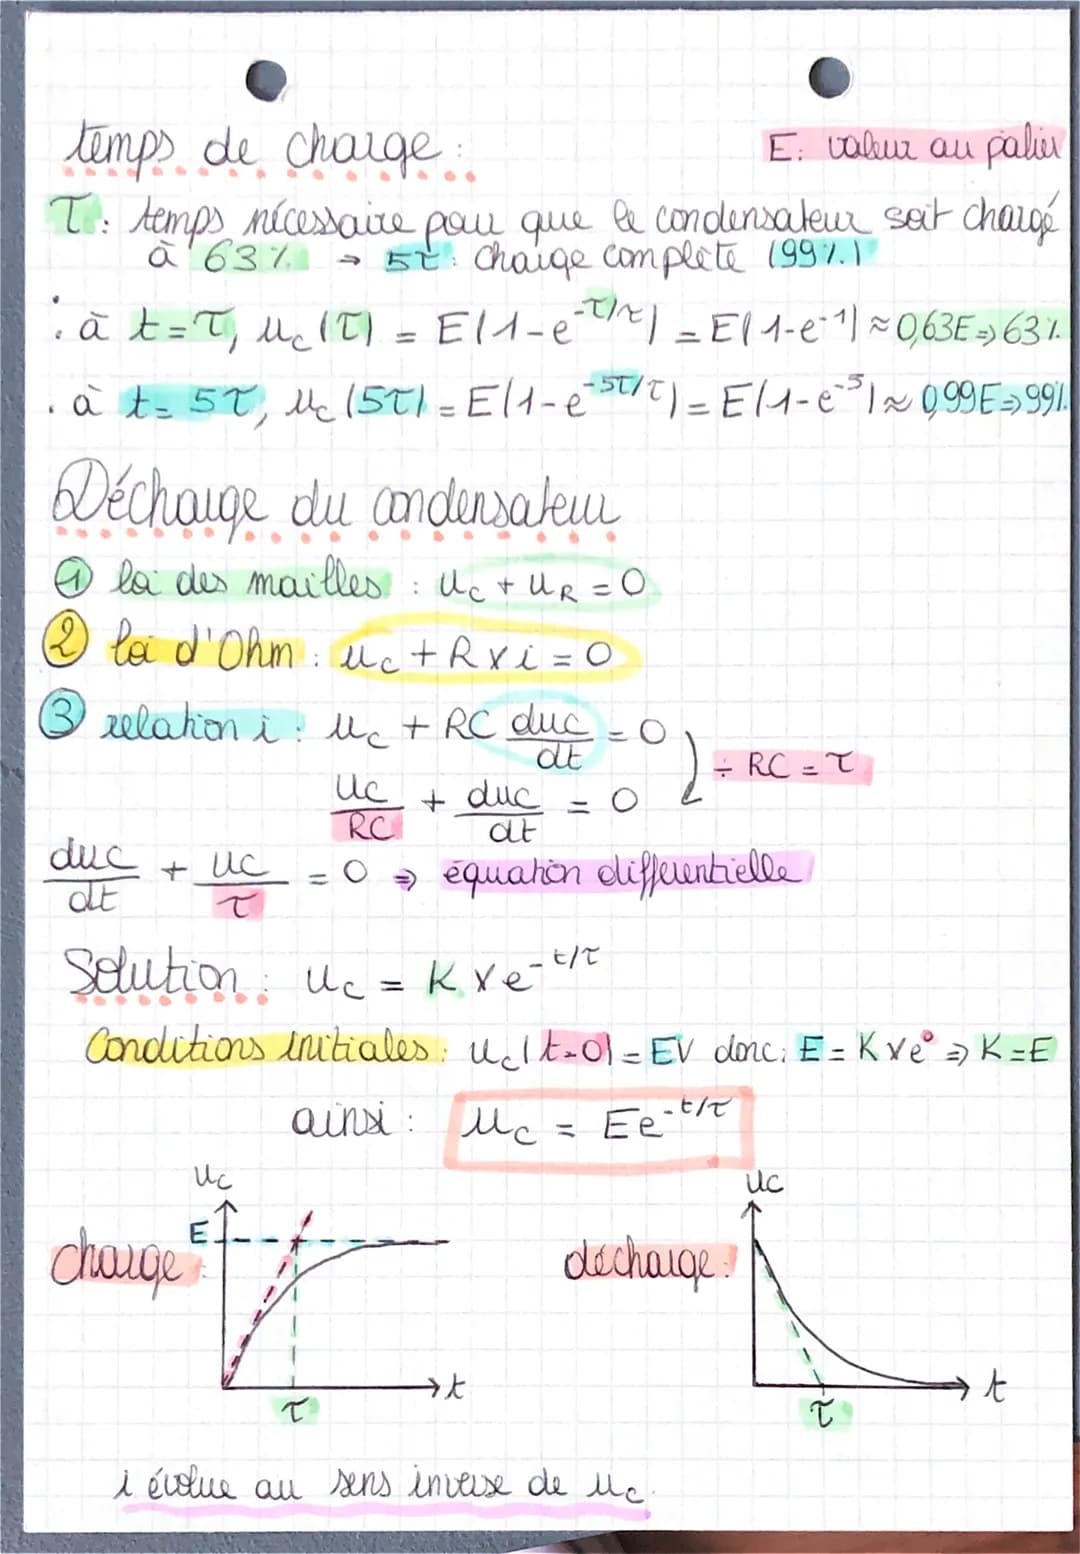 temps de charge :
E : valeur au palier
τ : temps nécessaire pour que le condensateur soit chargé
à 63% → 5τ : charge complète (99%)
: à t = τ, uc (τ) = E(1-e^-τ/τ) = E(1-e^-1) ≈ 0,63E => 63%
. à t = 5τ, uc (5τ) = E(1-e^-5τ/τ) = E(1-e^-5) ≈ 0,99E => 99%
Décharge du condensateur
① loi des mailles : uc + uR = 0
② loi d'Ohm : uc + R x i = 0
③ relation i : uc + RC duc/dt = 0
÷ RC = τ
uc/RC + duc/dt = 0
duc/dt + uc/τ = 0 => équation differentielle
Solution : uc = K x e^-t/τ
Conditions initiales : uc(t=0) = EV donc : E = K x e^0 => K = E
ainsi : uc = Ee^-t/τ
charge :
uc
E
τ
t
décharge :
uc
τ
t
i évolue au sens inverse de uc.